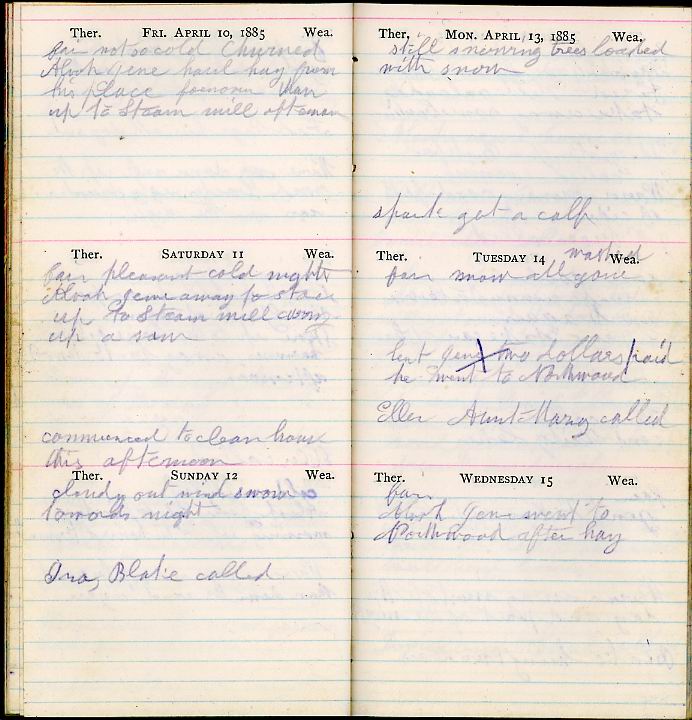 Ther. FRI. APRIL 10, 1885 Wea.
fair not so cold churned
Noah Gene haul hay from
his place forenoon
up to Steam mill afternoon
Ther. SATURDAY 11 Wea.
fair pleasant cold nights
Noah Gene away to
up to Steam mill
up a saw
commenced to clean house
this afternoon
Ther. SUNDAY 12 Wea.
cloudy out wind snow
towards night
Blake called
Ther. MON. APRIL 13, 1885 Wea.
still snowing trees loaded
with snow
spark got a calf
Ther. TUESDAY 14 Wea.
washed
fair snow all gone
lent Gene two dollars paid
he went to Northwood
Ellen Aunt Mary called
Ther. WEDNESDAY 15 Wea.
fair
Noah Gene went to
Northwood after hay